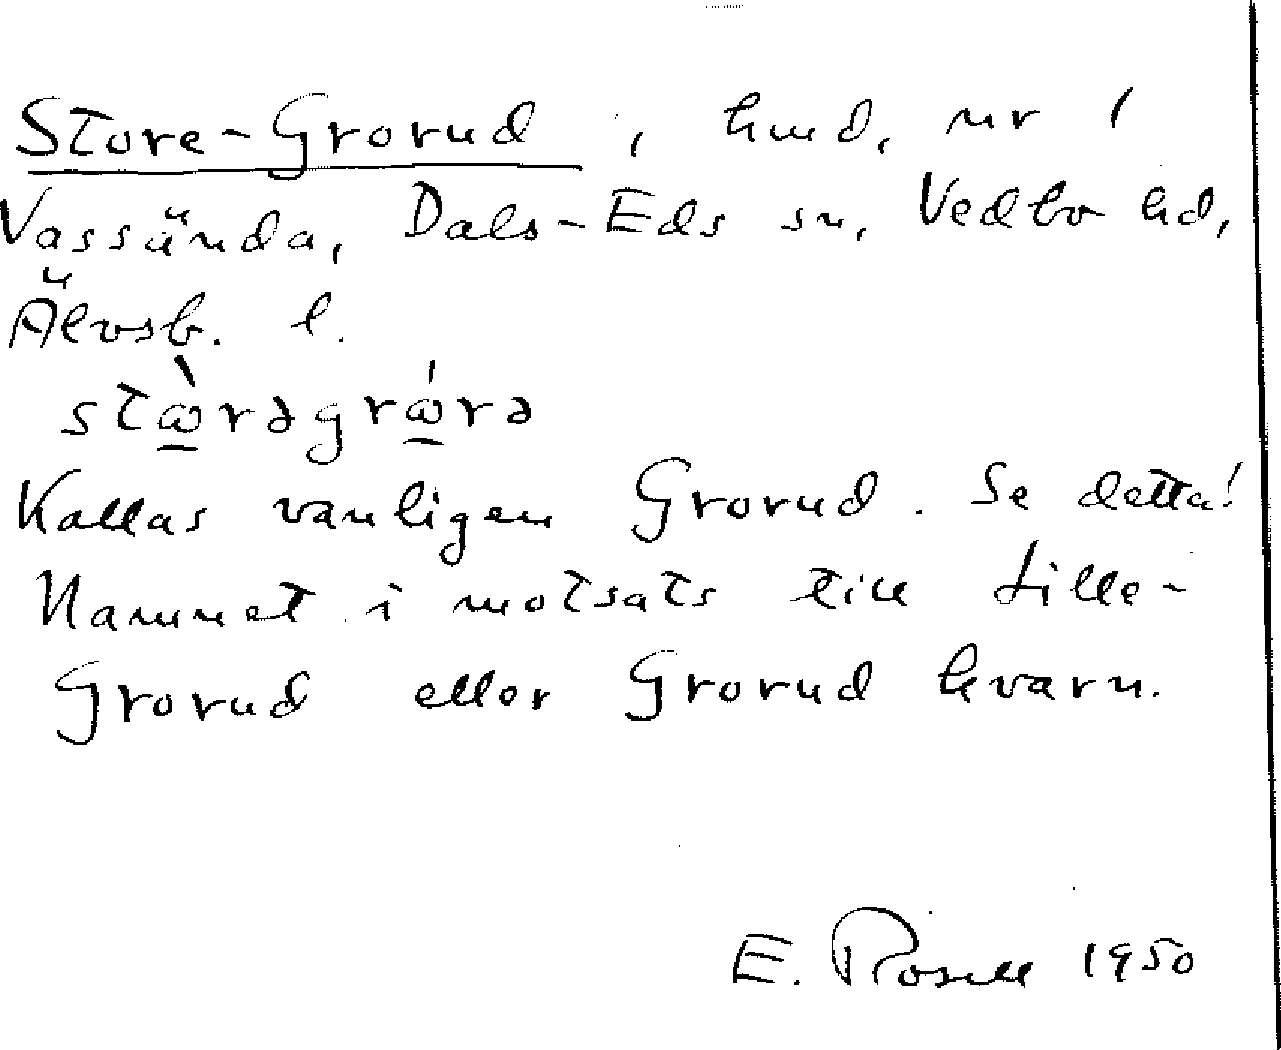 Store-Grorud, hmd, nr 1
Vassända, Dals-Eds sn, Vedbo hd,
Älvsb. l.
stɷ̠̀rəgrɷ̠́rə
Kallas vanligen Grorud. Se detta!
Namnet i motsats till Lille-
Grorud eller Grorud kvarn.
E. Rosell 1950